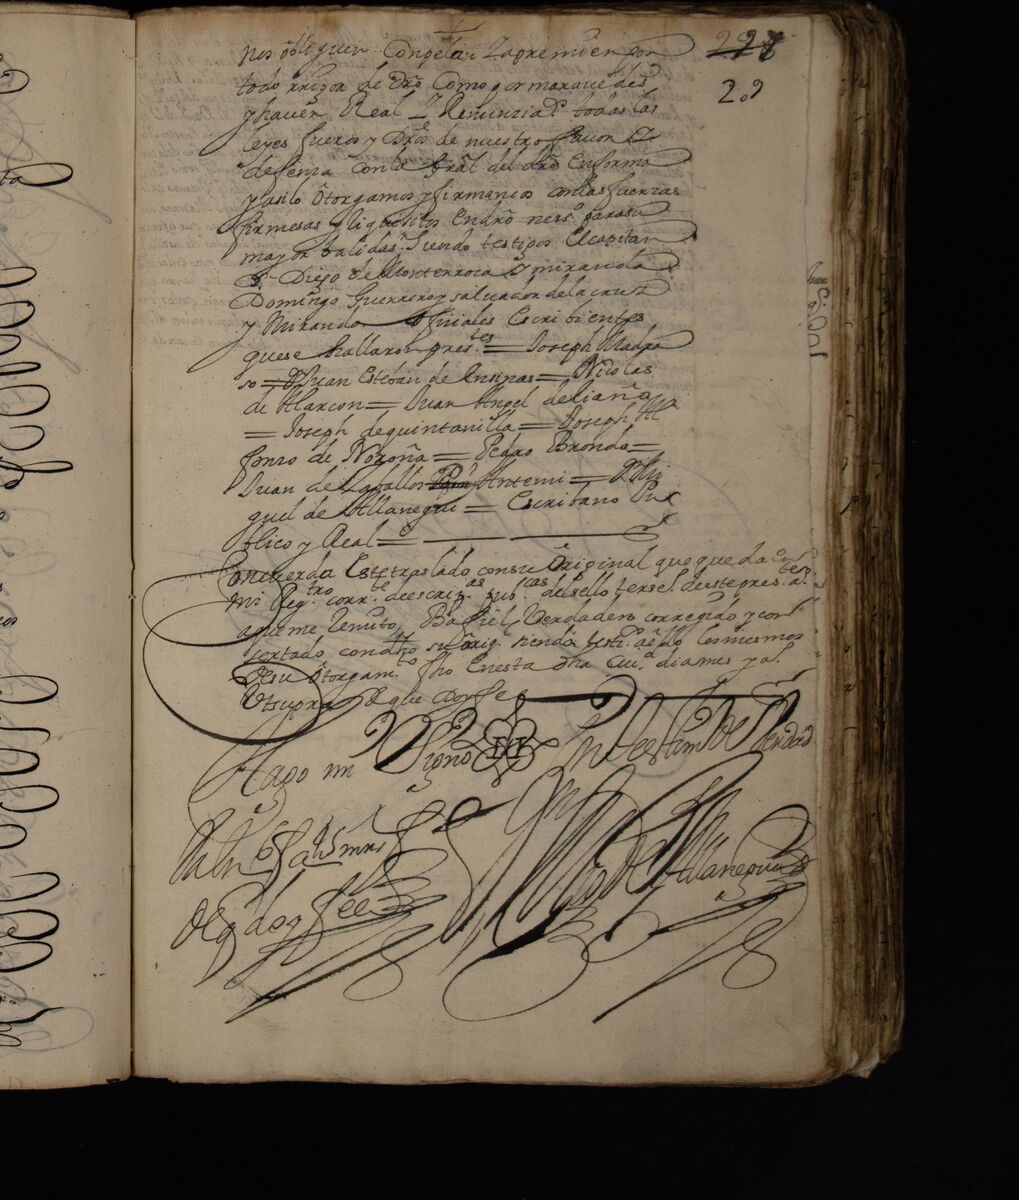 227
209
nos obliguen Conpelan y apremien por
todo rrigor de dro Como por maravedes
y haver Real y Renunziaˢ todas las
leyes fueros y dros de nuestro fauor y
defenza con la Gral del dro En forma
y asi lo otorgamos y firmamos con las fuerzas
firmesas y liquisitos En dro nessº para su
mayor balidasⁿ siendo testigos El capitan
Dⁿ Diego de Monterroca y miranda
Domingo Guerrero y saluador de la cruz
y Miranda ofisiales Escribientes
que se hallaron presᵗᵉˢ = Joseph Madra
so = Dⁿ Juan Esteban de Ensinas = Nicolas
de Alarcon = Juan Angel de liaña
= Joseph de quintanilla = Joseph Al
fonso de Noroña = Pedro Bronda =
Juan de Zaballos Antemi = Dⁿ Mi
guel de Allanegui = Escribano Pu
blico y Real =
Concuerda Este traslado con su Original que queda En
mi Regᵗʳᵒ corrᵗᵉ de escripᵃˢ pubᶜᵃˢ del sello terseº deste presᵗᵉ aº
a que me Remito, Ba fiel Verdadero corregido y con
sertado con dho su orig siendo testigos a lo los mesmos
de su Otorgamᵗᵒ fho En esta dha ciuᵈ dia mes y aº
Vtsupra de que Doy fe
Hago mi Signo En Testimº de Verdad
de q doy fee
Mig de Allanegui